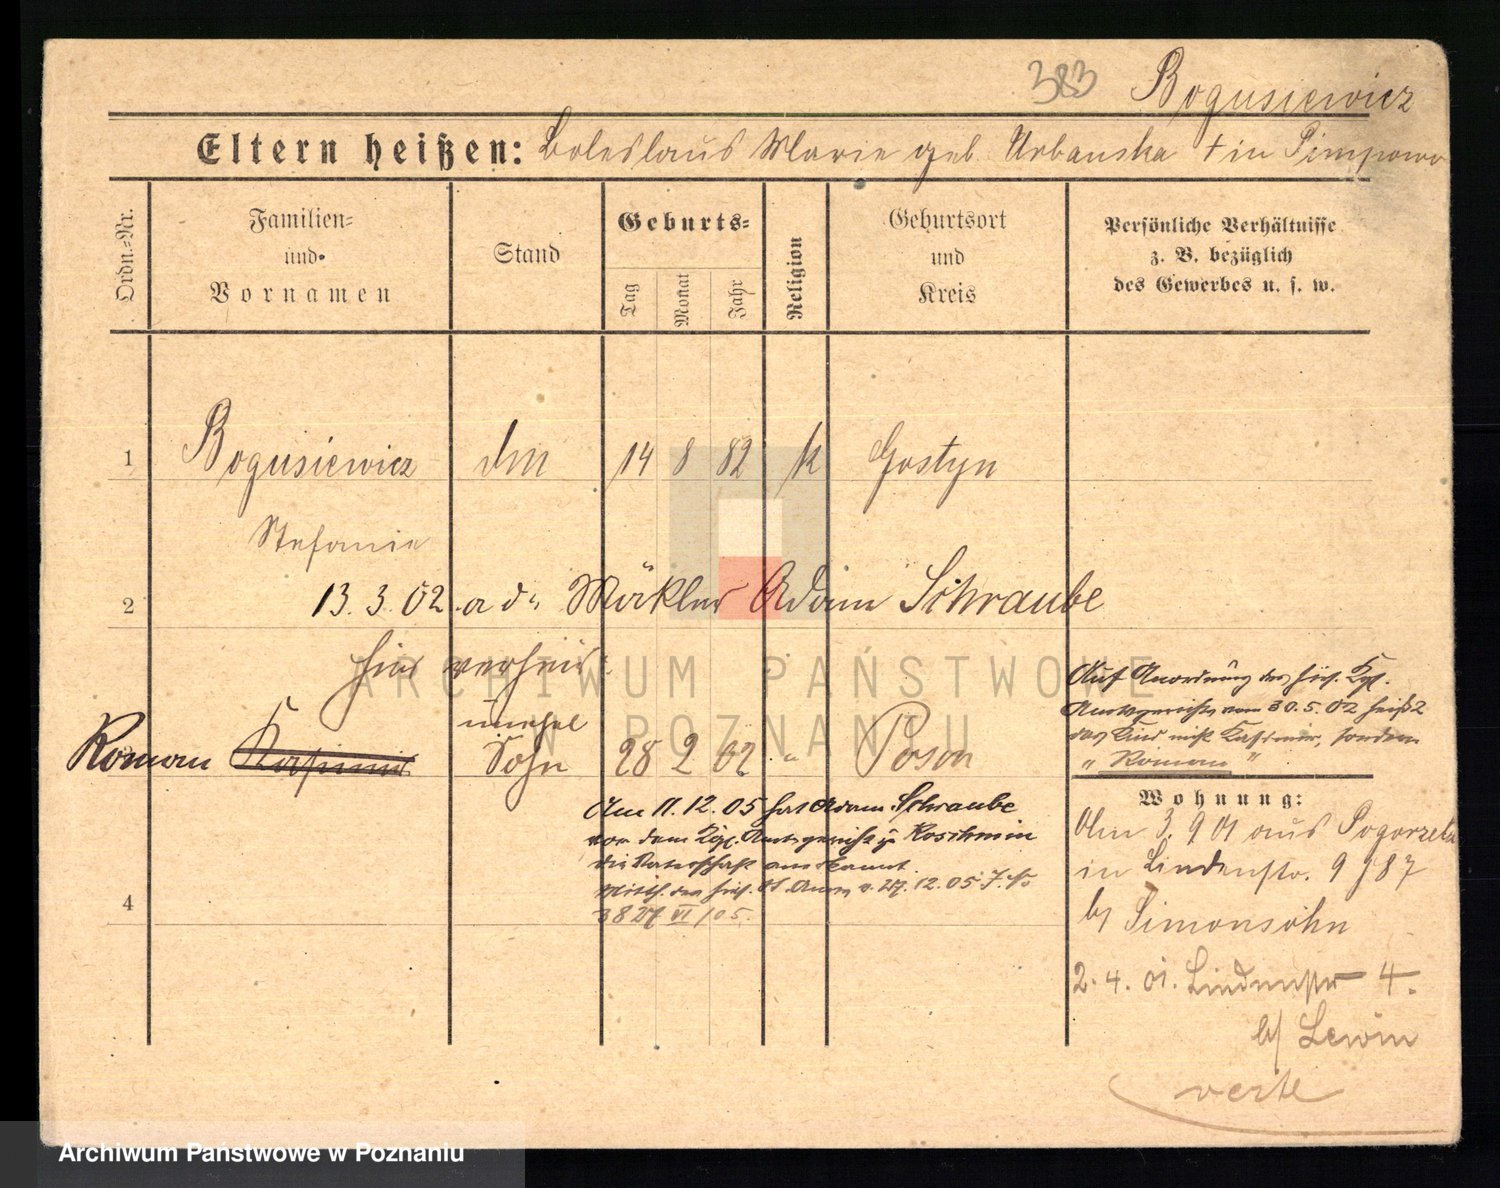 383 Bogusiewicz
Eltern heißen: Boleslaus Marie geb. Urbanska † in Pempowo
Ordn.=Nr.
Familien=
und
Vornamen
Stand
Geburts=
Tag
Monat
Jahr
Religion
Geburtsort
und
Kreis
Persönliche Verhältnisse
z. B. bezüglich
des Gewerbes u. s. w.
1 Bogusiewicz 14 8 82 k Gostyn
Stefanie
2 13. 3. 02 Mäkler Adam Schraube
hier
unehel
Roman Kasimir Sohn 28 2 02 " Posen
Auf Anordnung des hies. Kgl.
Amtsgerichts vom 30. 5. 02 heißt
das Kind nicht Kasimir, sondern
„ Roman "
Am 11. 12. 05 hat Adam Schraube
vor dem Kgl. Amtsgericht zu Koschmin
die Vaterschaft anerkannt.
12. 05
VI/05.
4
Wohnung:
3. 9 01 aus Pogorzela
in Lindenstr. 9
b/ Simonsohn
2. 4. 01. Lindenstr 4.
b/ Lewin
verte
ARCHIWUM PAŃSTWOWE
W POZNANIU
Archiwum Państwowe w Poznaniu